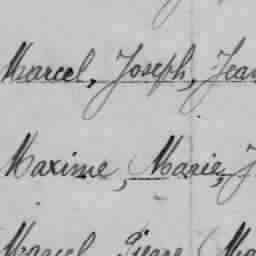 Marcel, Joseph, Jean
Maxime, Marie, J
Marcel Pierre Ma